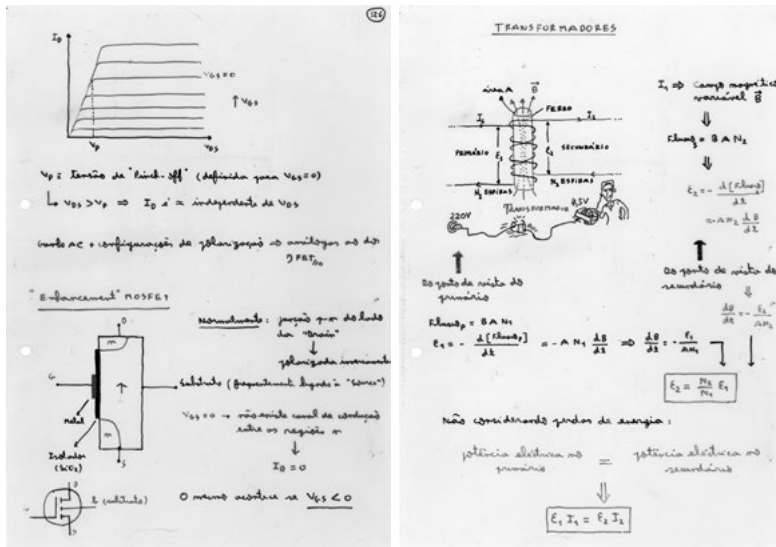 126
I_D
V_GS=0
↑ V_GS
V_P
V_DS
V_P ≡ tensão de "Pinch-off" (definida para V_GS=0)
↳ V_DS > V_P ⇒ I_D é ≈ independente de V_DS
Ganho AC + configurações de polarização análogas dos
JFET
"Enhancement" MOSFET
D
n
G
Metal
Isolador
(SiO2)
n
S
Normalmente: junção p-n do lado
da "Drain"
↓
polarizada inversamente
Substrato (frequentemente ligado à "Source")
V_GS=0 → não existe canal de condução
entre as regiões n
↓
I_D = 0
O mesmo acontece se V_GS < 0
D
b (substrato)
S
TRANSFORMADORES
área A
B
FERRO
I_1
I_2
PRIMÁRIO
ε_1
ε_2
SECUNDÁRIO
N_1 ESPIRAS
N_2 ESPIRAS
TRANSFORMADOR
220V
9,5V
I_1 ⇒ Campo magnético
variável B
⇓
Fluxo_2 = B A N_2
⇓
ε_2 = - d[Fluxo_2]/dt
= -A N_2 dB/dt
Do ponto de vista do
primário
Do ponto de vista do
secundário
⇓
dB/dt = - ε_2/AN_2
Fluxo_P = B A N_1
ε_1 = - d[Fluxo_P]/dt = -A N_1 dB/dt ⇒ dB/dt = - ε_1/AN_1
ε_2 = N_2/N_1 ε_1
Não considerando perdas de energia:
potência elétrica no primário = potência elétrica no secundário
⇓
ε_1 I_1 = ε_2 I_2